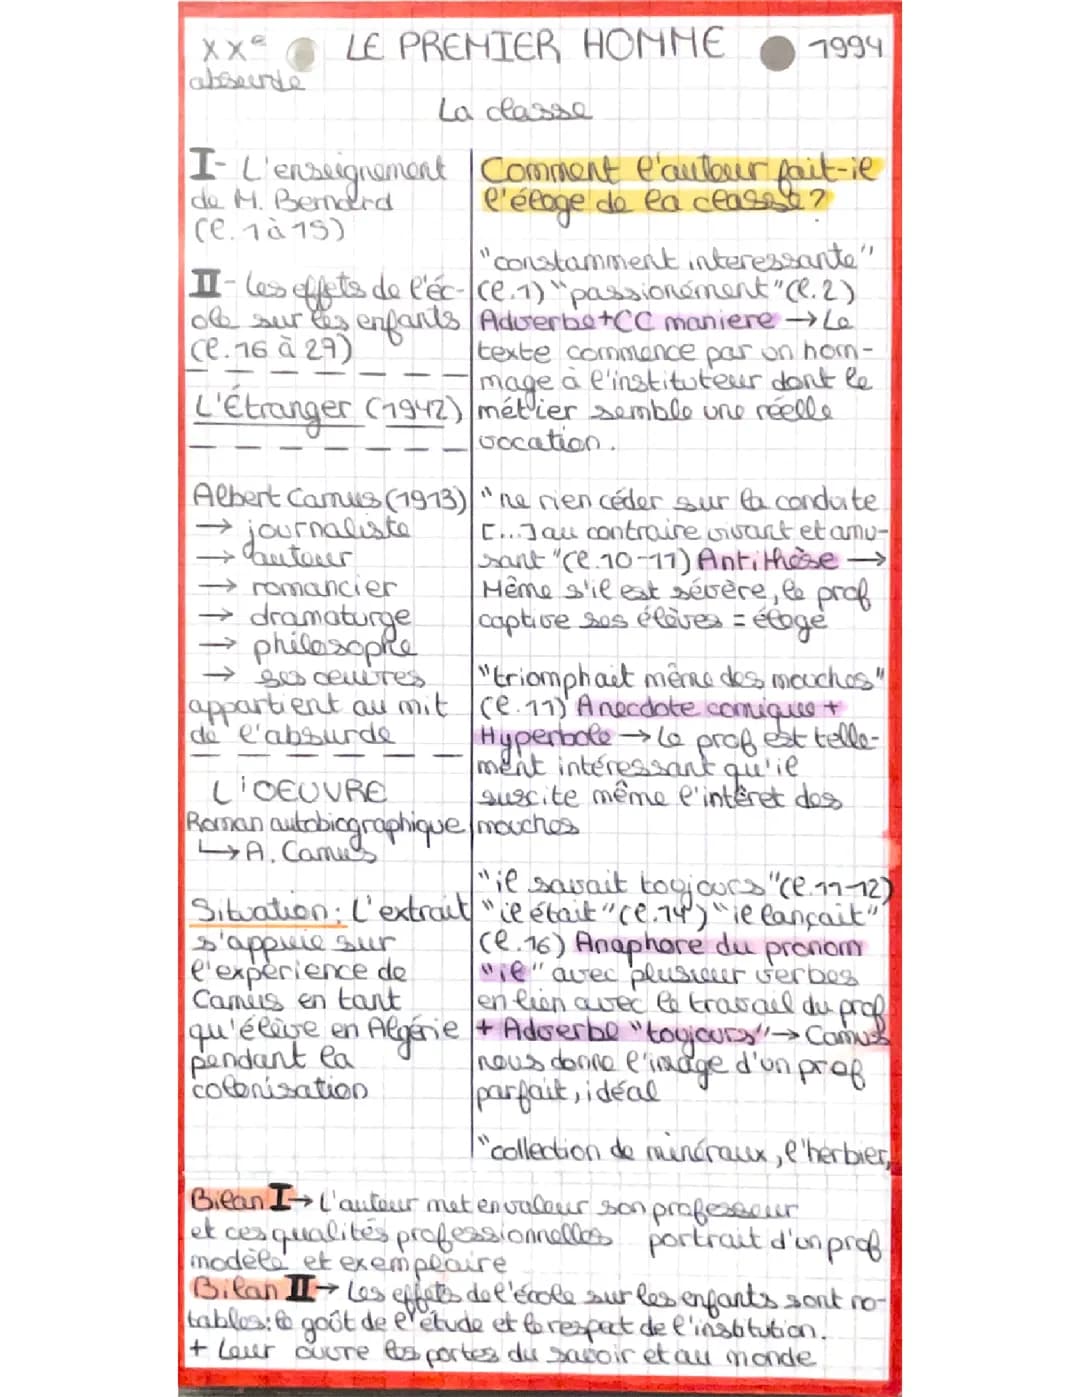 XXe LE PREMIER HOMME 1994
absurde
La classe
I- L'enseignement
de M. Bernard
(l. 1 à 15)
II- Les effets de l'éc-
ole sur les enfants
(l. 16 à 29)
L'Étranger (1942)
Albert Camus (1913)
→ journaliste
→ auteur
→ romancier
→ dramaturge
→ philosophe
→ ses oeuvres
appartient au mit
de l'absurde
L'OEUVRE
Roman autobiographique
↳ A. Camus
Situation : L'extrait
s'appuie sur
l'expérience de
Camus en tant
qu'élève en Algérie
pendant la
colonisation
Comment l'auteur fait-il
l'éloge de la classe ?
"constamment interessante"
(l.1) "passionément" (l.2)
Adverbe+CC maniere → Le
texte commence par un hom-
mage à l'instituteur dont le
métier semble une réelle
vocation.
"ne rien céder sur la conduite
[...] au contraire vivant et amu-
sant" (l.10-11) Antithèse →
Même s'il est sévère, le prof
captive ses élèves = éloge
"triomphait même des mouches"
(l.11) Anecdote comique +
Hyperbole → Le prof est telle-
ment intéressant qu'il
suscite même l'intêret des
mouches
"il savait toujours" (l.11-12)
"il était" (l.14) "il lançait"
(l.16) Anaphore du pronom
"il" avec plusieur verbes
en lien avec le travail du prof
+ Adverbe "toujours" → Camus
nous donne l'image d'un prof
parfait, idéal
"collection de minéraux, l'herbier,
Bilan I → L'auteur met en valeur son professeur
et ces qualités professionnelles portrait d'un prof
modèle et exemplaire
Bilan II → Les effets de l'école sur les enfants sont no-
tables : le goût de l'étude et le respect de l'institution.
+ Leur ouvre les portes du savoir et au monde